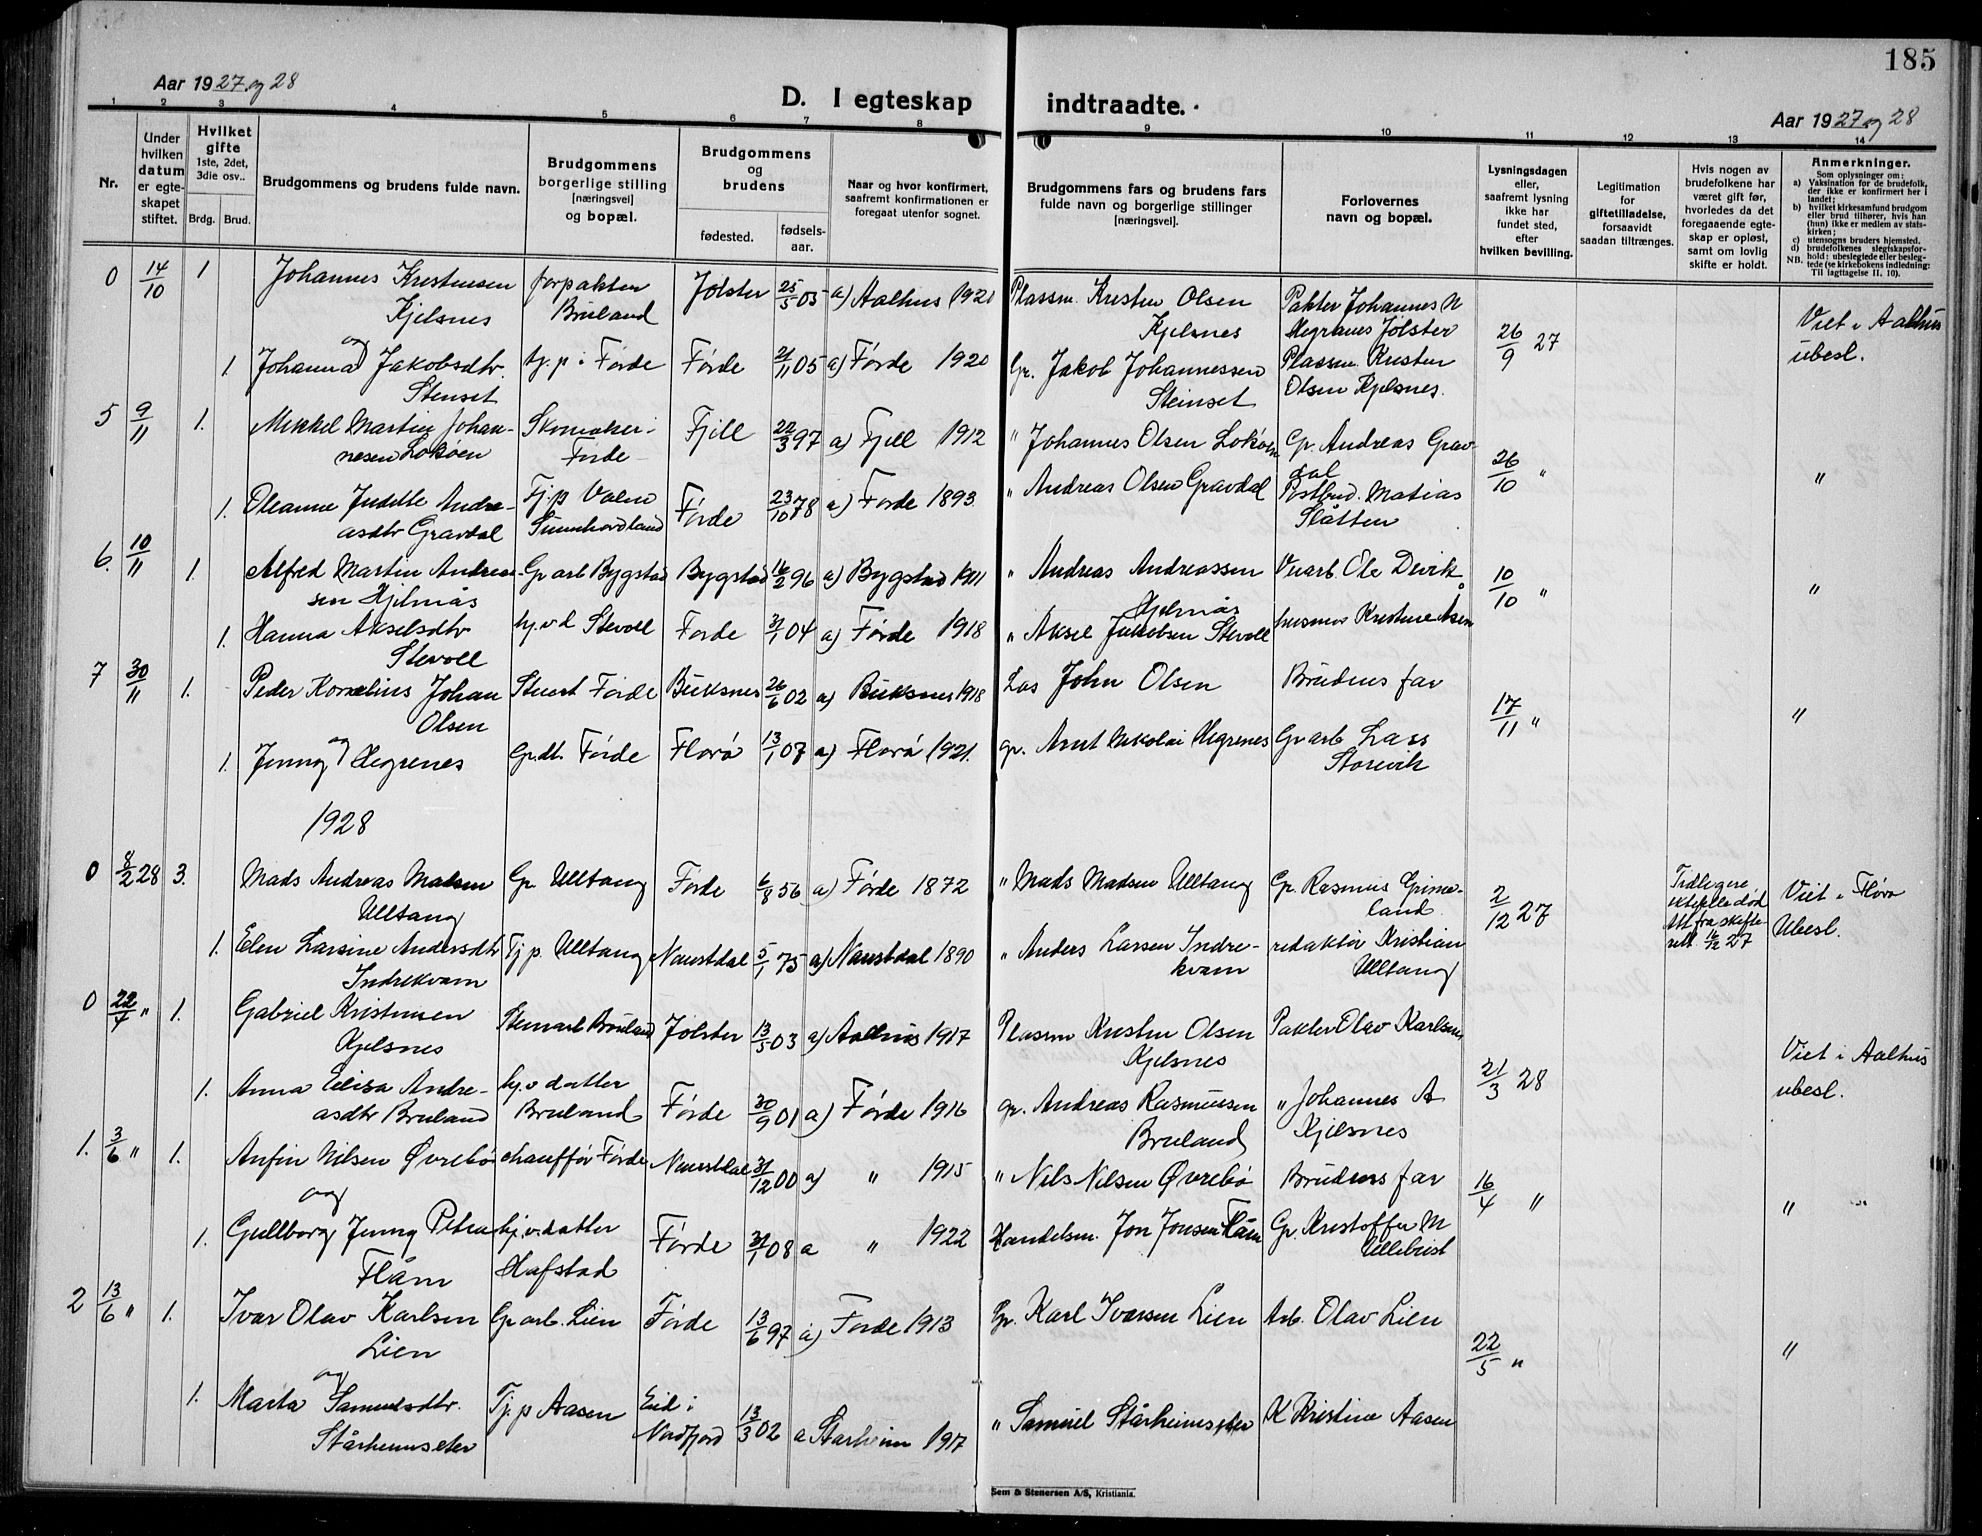 185
Aar 1927 og 28
D. I egteskap indtraadte.
Aar 1927 og 28
1 2 3 4 5 6 7 8 9 10 11 12 13 14
Nr.
Under hvilken datum er egteskapet stiftet.
Hvilket gifte 1ste, 2det, 3die osv..
Brdg. Brud.
Brudgommens og brudens fulde navn.
Brudgommens borgerlige stilling [næringsvei] og bopæl.
Brudgommens og brudens
fødested. fødselsaar.
Naar og hvor konfirmert, saafremt konfirmationen er foregaat utenfor sognet.
Brudgommens fars og brudens fars fulde navn og borgerlige stillinger [næringsvei].
Forlovernes navn og bopæl.
Lysningsdagen eller, saafremt lysning ikke har fundet sted, efter hvilken bevilling.
Legitimation for giftetilladelse, forsaavidt saadan tiltrænges.
Hvis nogen av brudefolkene har været gift før, hvorledes da det foregaaende egteskap er opløst, samt om lovlig skifte er holdt.
Anmerkninger.
Som oplysninger om:
a) Vaksination for de brudefolk, der ikke er konfirmert her i landet;
b) hvilket kirkesamfund brudgom eller brud tilhører, hvis han (hun) ikke er medlem av statskirken;
c) utensogns bruders hjemsted.
d) brudefolkenes slegtskapsforhold: ubeslegtede eller beslegtede (se kirkebokens indledning: Til iagttagelse II. 10).
NB.
0 14/10 1 Johannes Kristensen Kjelsnes forpakter Bruland Jølster 25/5 05 a) Aalhus 1920 Plassm. Kristen Olsen Kjelsnes Pakter Johannes N Hegrenes Jølster 26/9 27 Viet i Aalhus ubesl.
og
1. Johanna Jakobsdtr. Stenset tj. p. i Førde Førde 21/11 05 a) Førde 1920 Gr. Jakob Johannessen Steinset Plassm. Kristen Olsen Kjelsnes.
5 9/11 1. Mikkel Martin Johannesen Lokøen Skomaker i Førde Fjell 22/3 97 a) Fjell 1912 " Johannes Olsen Lokøen Gr. Andreas Gravdal 26/10 " "
1. Oleanne Judette Andreasdtr Gravdal Tj. p Valen Sunnhordland Førde 23/10 78 a) Førde 1893 " Andreas Olsen Gravdal Postbud. Matias Slåtten
6. 10/11 1. Alfred Martin Andreassen Hjelmås Gr arb Bygstad Bygstad 16/2 96 a) Bygstad 1911 " Andreas Andreassen Hjelmås Ole Devik 10/10 " "
1. Hanna Akselsdtr Stevoll hj. v d Stevoll Førde 31/1 04 a) Førde 1918 " Aksel Jakobsen Stevoll husmor Kristine Åsen
7 30/11 1. Peder Kornelius Johan Olsen Stuert Førde Buksnes 26/6 02 a) Buksnes 1918 Los John Olsen Brudens far 17/11 " "
og
1. Jenny Hegrenes Gr. dt. Førde Florø 13/1 07 a) Florø 1921. gr. Arnt Nikolai Hegrenes Gr arb Lars Storevik
1928
0 8/2 28 3. Mads Andreas Madsen Ulltang Gr. Ulltang Førde 6/8 56 a) Førde 1872 " Mads Madsen Ulltang Gr. Rasmus Grimeland 2/12 27 Tidligere ektefelle død Att fra skifterett. 16/12 27 Viet i Florø Ubesl.
1. Elen Larsine Andersdtr Indrekvam Tj p. Ulltang Naustdal 5/1 75 a) Naustdal 1890 " Anders Larsen Indrekvam redaktør Kristian Ulltang
0 22/4 " 1. Gabriel Kristensen Kjelsnes Stenarb Bruland Jølster 13/5 03 a) Aalhus 1917 Plassm Kristen Olsen Kjelsnes Pakter Olav Karlsen 21/3 28 Viet i Aalhus ubesl.
1. Anna Elisa Andreasdtr Bruland hj. v datter Bruland Førde 30/9 01 a) Førde 1916 gr. Andreas Rasmussen Bruland " Johannes A Kjelsnes
1. 3/6 " 1. Anfin Nilsen Øvrebø chauffør Førde Naustdal 31/12 00 a) " 1915 " Nils Nilsen Øvrebø Brudens far 16/4 " "
og
1. Gullborg Jenny Petra Flåm hj. v. datter Hafstad Førde 31/1 08 a " 1922 Handelsm. Jon Jonsen Flåm Gr. Kristoffer M Ullebust
2 13/6 " 1. Ivar Olav Karlsen Lien Gr arb. Lien Førde 13/6 97 a) Førde 1913 Gr. Karl Ivarsen Lien Arb. Olav Lien 22/5 " "
og
1. Marta Samuelsdtr. Stårheimseter Tj. p Aasen Eid i Nordfjord 13/3 02 a Starheim 1917 " Samuel Stårheimseter K Kristine Aasen
Sem & Stenersen A/S, Kristiania.